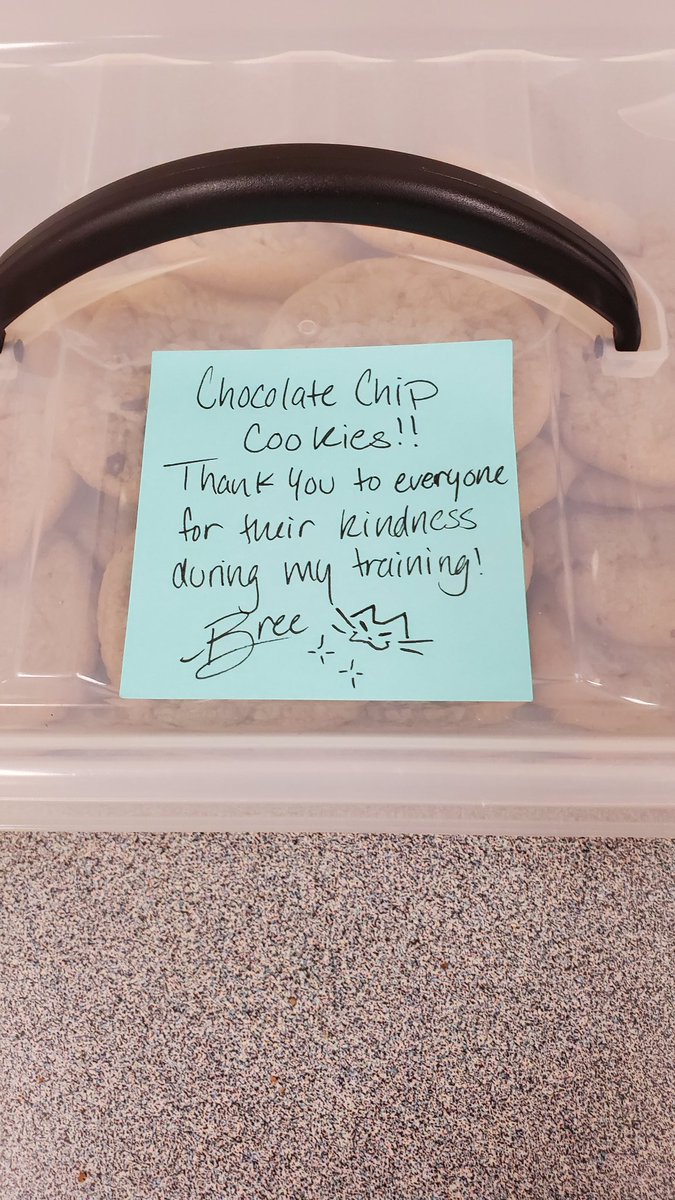 Chocolate Chip
Cookies!!
Thank you to everyone
for their kindness
during my training!
Bree